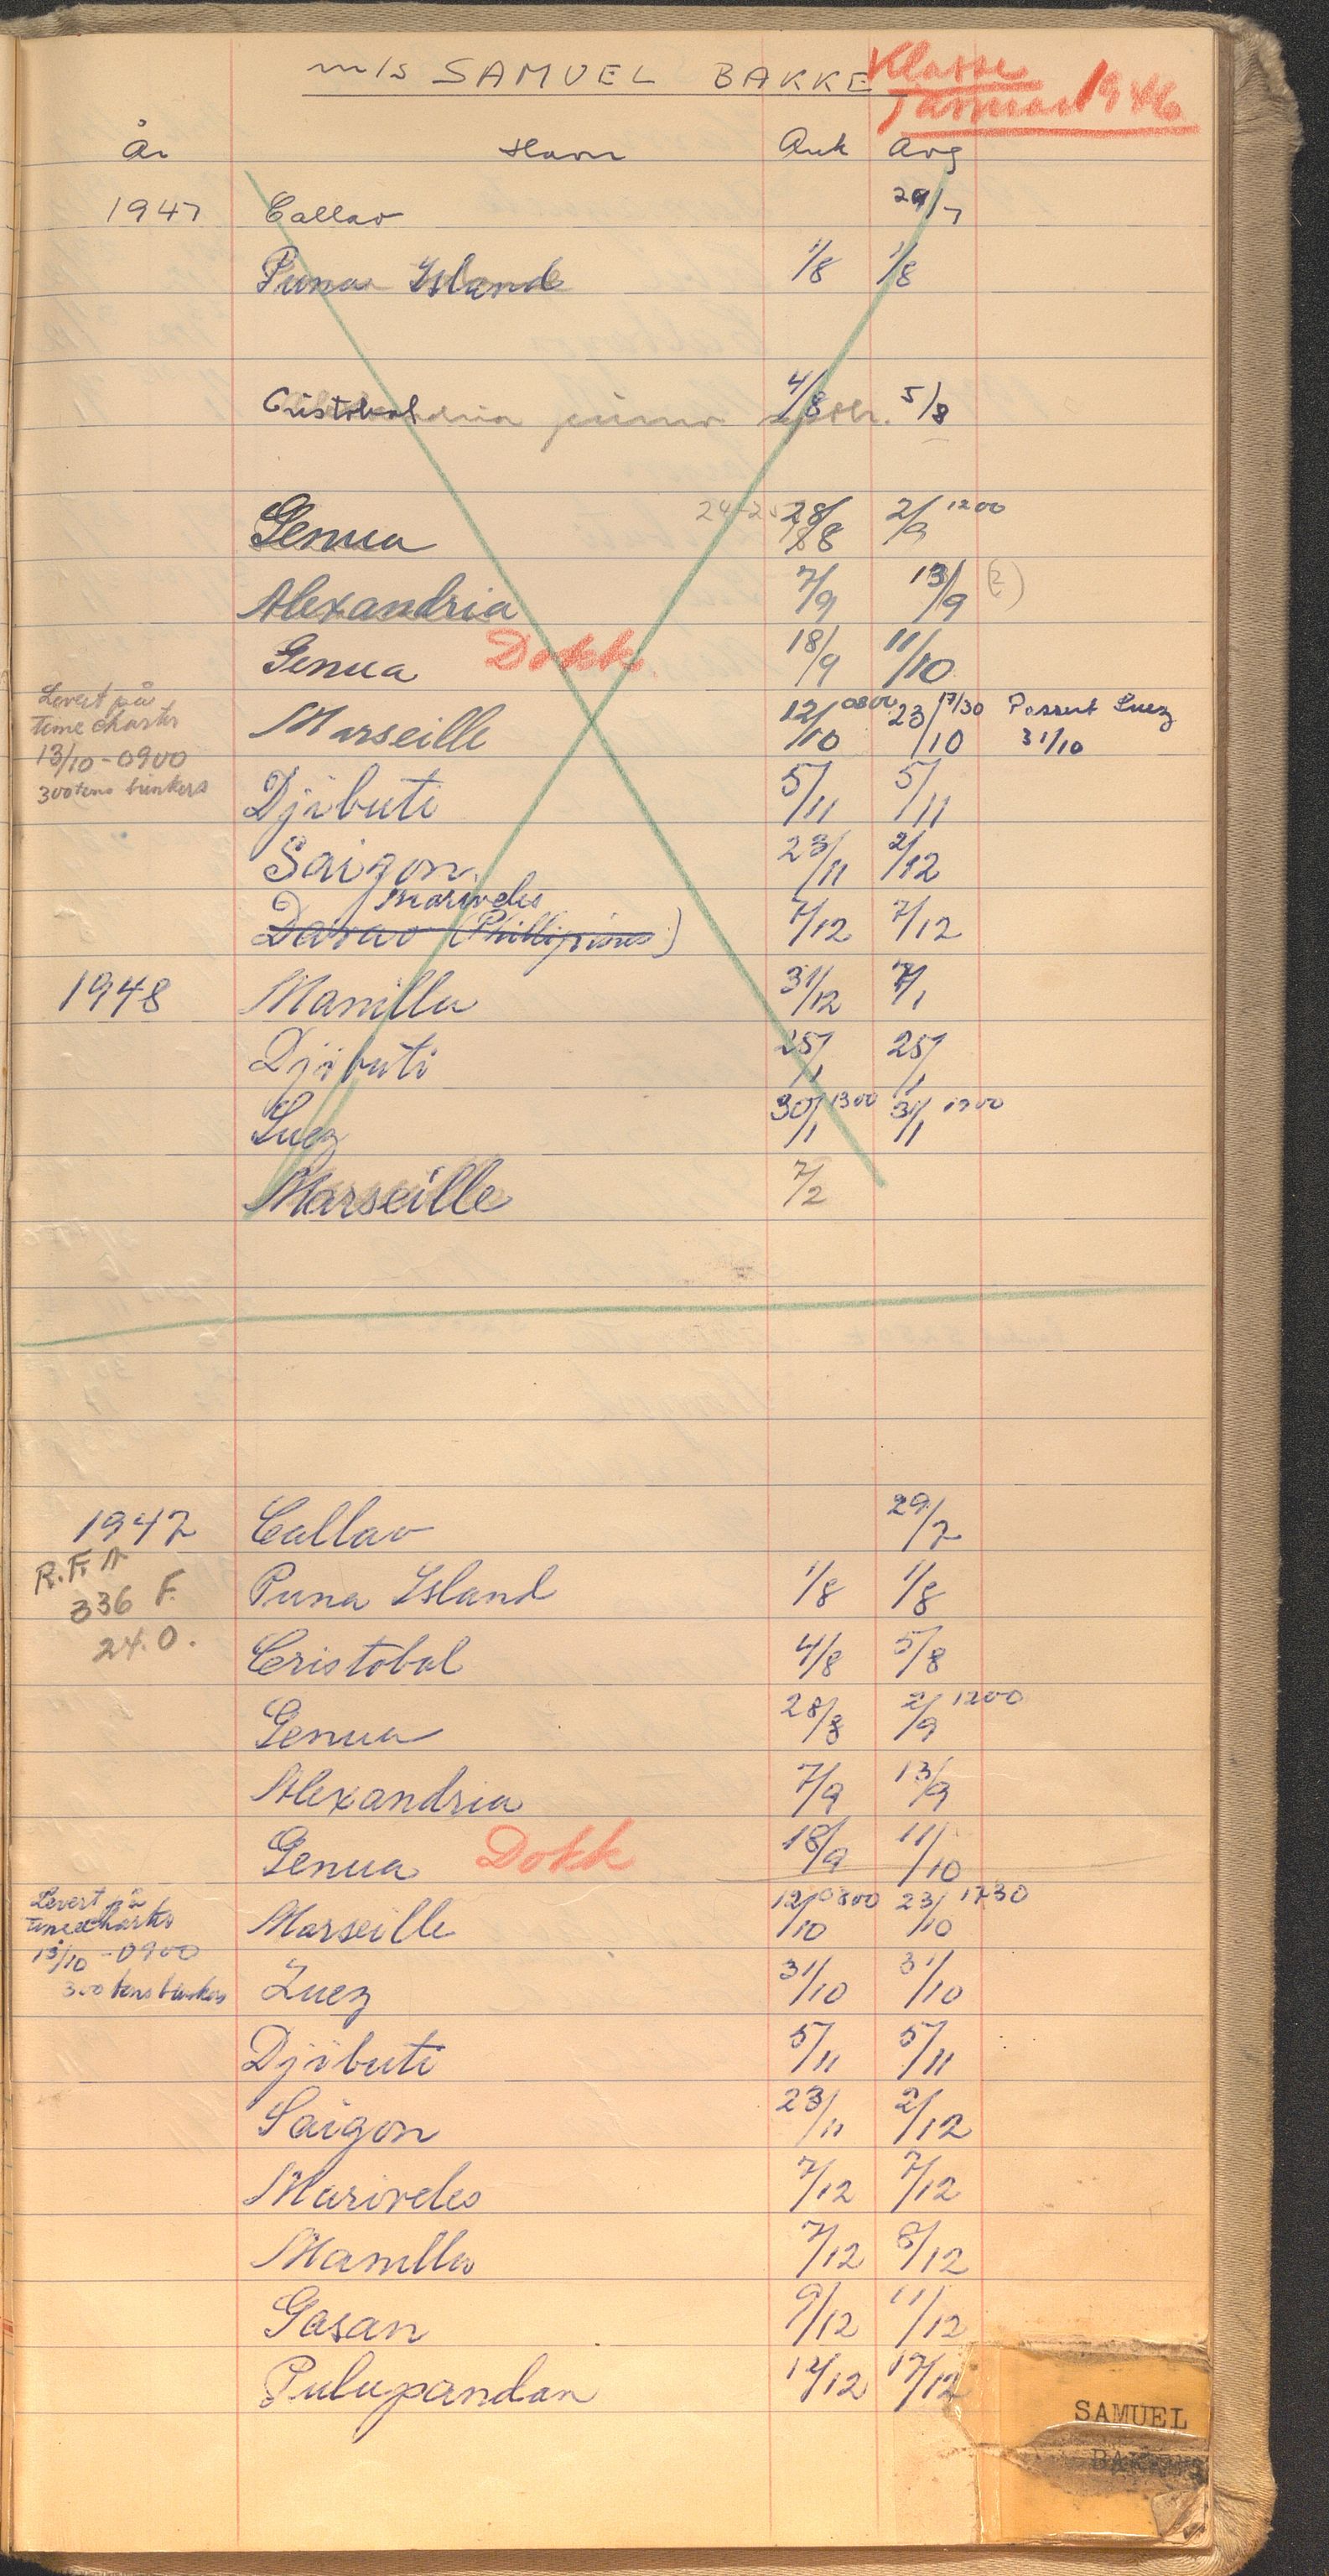 m/s SAMUEL BAKKE
Klasse
Januar 1946
År Havn Ank Avg
1947 Callao 29/7
Puna Island 1/8 1/8
Cristobal 4/8 5/8
Genua 28/8 2/9 1200
Alexandria 7/9 13/9 (2)
Genua Dokk 18/9 11/10
Levert på
time charter
13/10 - 0900
300 tons bunkers
Marseille 12/10 0800 23/10 1730 Passert Suez 31/10
Djibuti 5/11 5/11
Saigon 23/11 2/12
Mariveles
Davao (Phillipines) 7/12 7/12
1948 Manilla 31/12 7/1
Djibuti 25/1 25/1
Suez 30/1 1300 31/1 1900
Marseille 7/2
1947 Callao 29/7
R.F.
336 F.
24. O.
Puna Island 1/8 1/8
Cristobal 4/8 5/8
Genua 28/8 2/9 1200
Alexandria 7/9 13/9
Genua Dokk 18/9 11/10
Levert på
time charter
13/10 - 0900
300 tons bunkers
Marseille 12/10 0800 23/10 1730
Zuez 31/10 31/10
Djibuti 5/11 5/11
Saigon 23/11 2/12
Mariveles 7/12 7/12
Manilla 7/12 8/12
Gasan 9/12 11/12
Pulupandan 12/12 17/12
SAMUEL
BAKKE